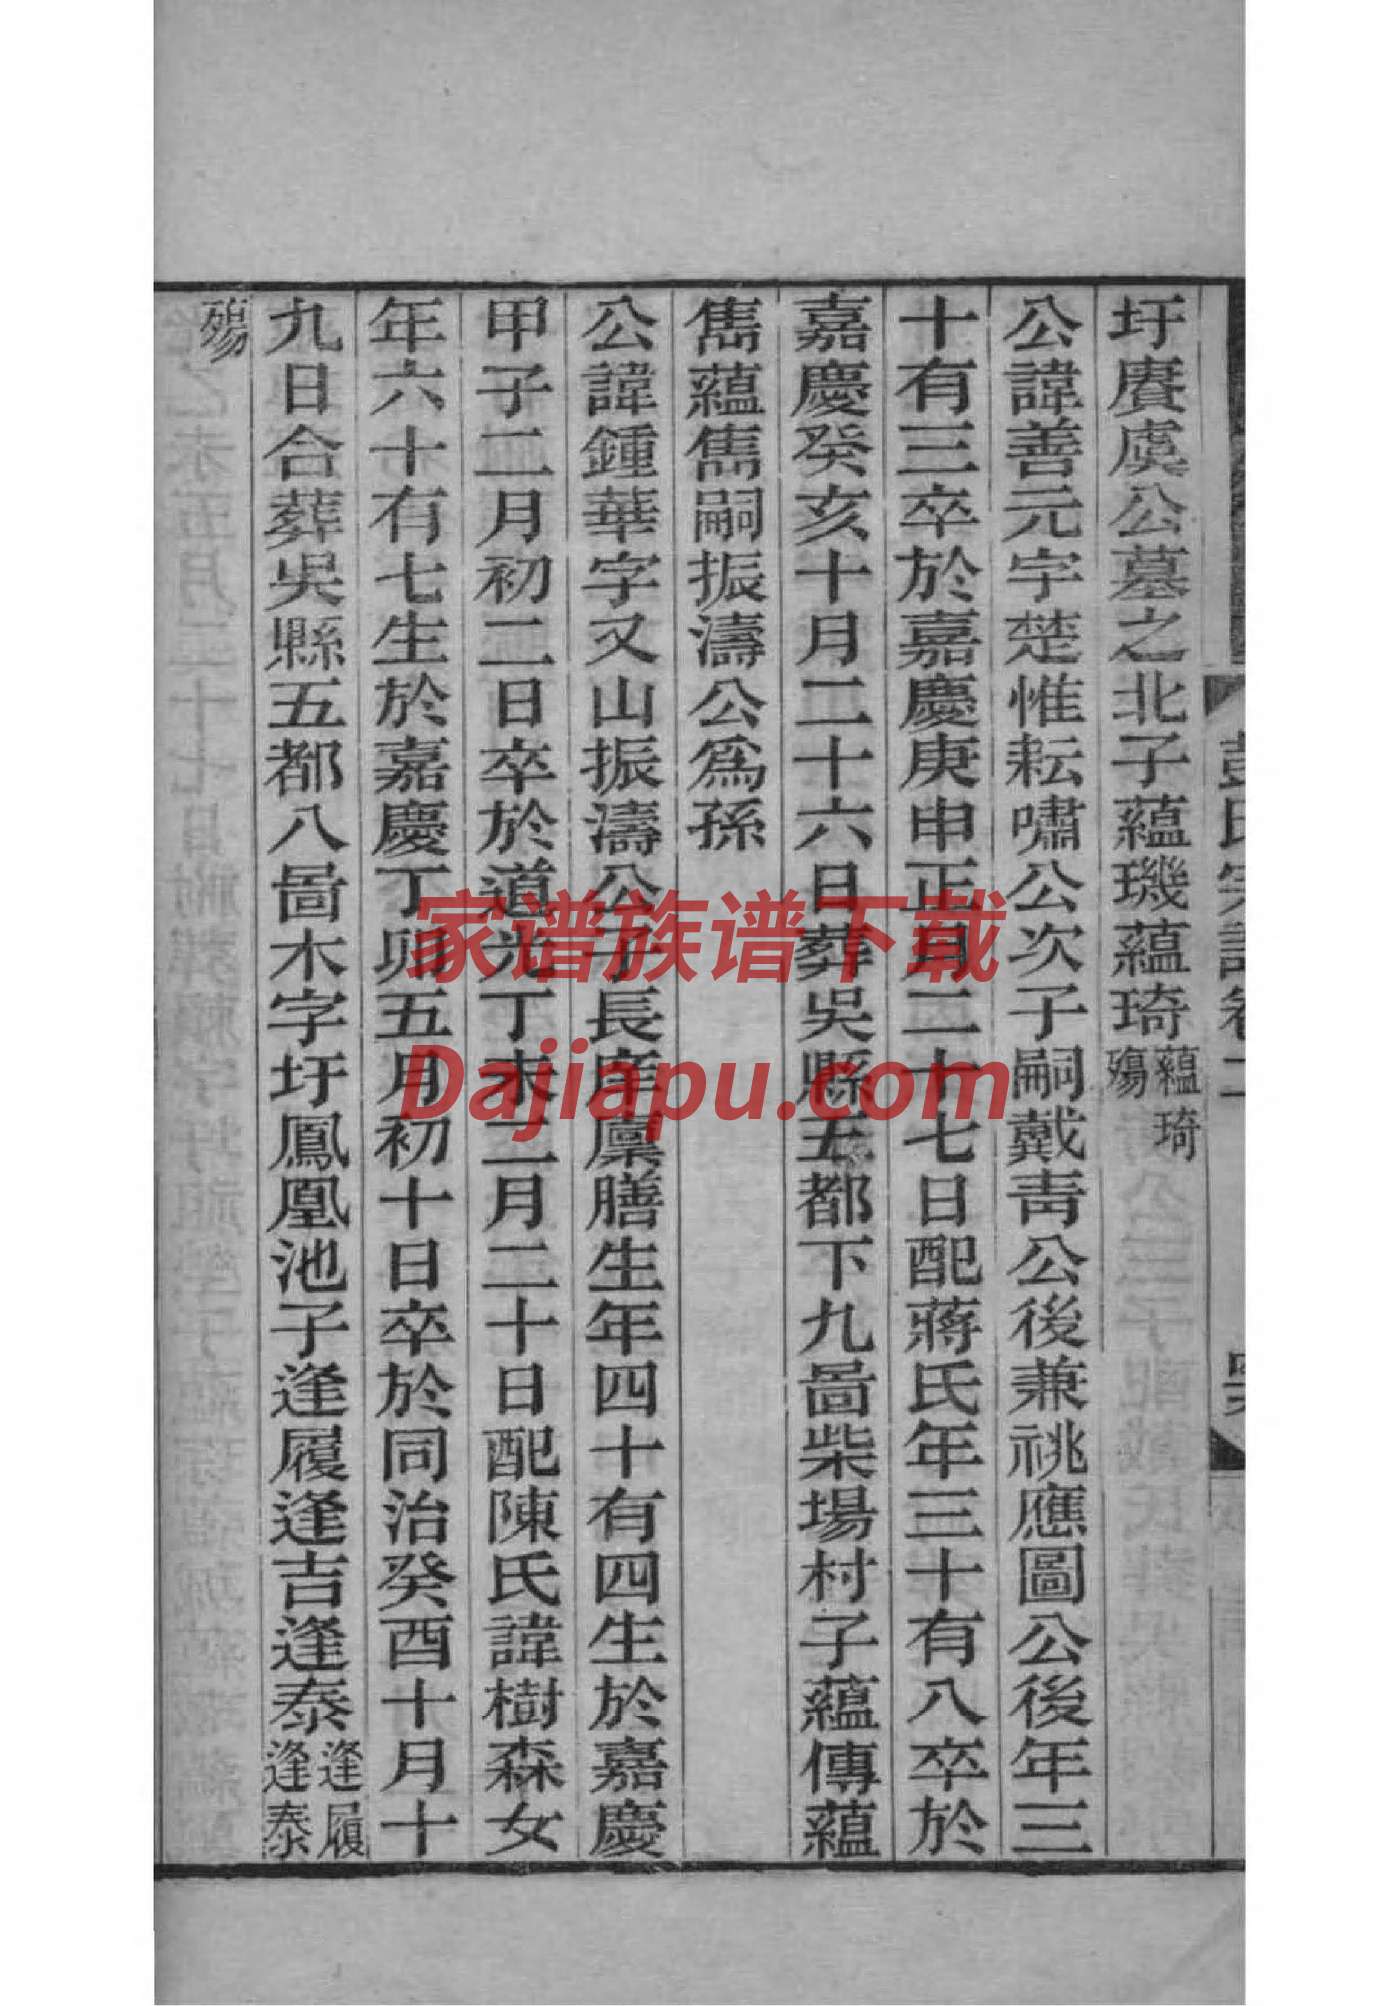 圩賡虞公墓之北子蘊璣蘊琦蘊琦殤
公諱善元字楚惟耘嘯公次子嗣戴靑公後兼祧應圖公後年三
十有三卒於嘉慶庚申正月二十七日配蔣氏年三十有八卒於
嘉慶癸亥十月二十六日葬吳縣五都下九啚柴場村子蘊傳蘊
雋蘊雋嗣振濤公爲孫
公諱鍾華字又山振濤公子長庠廩膳生年四十有四生於嘉慶
甲子二月初二日卒於道光丁未二月二十日配陳氏諱樹森女
年六十有七生於嘉慶丁卯五月初十日卒於同治癸酉十月十
九日合葬吳縣五都八啚木字圩鳳凰池子逢履逢吉逢泰逢履逢泰
殤
家谱族谱下载
Dajiapu.com